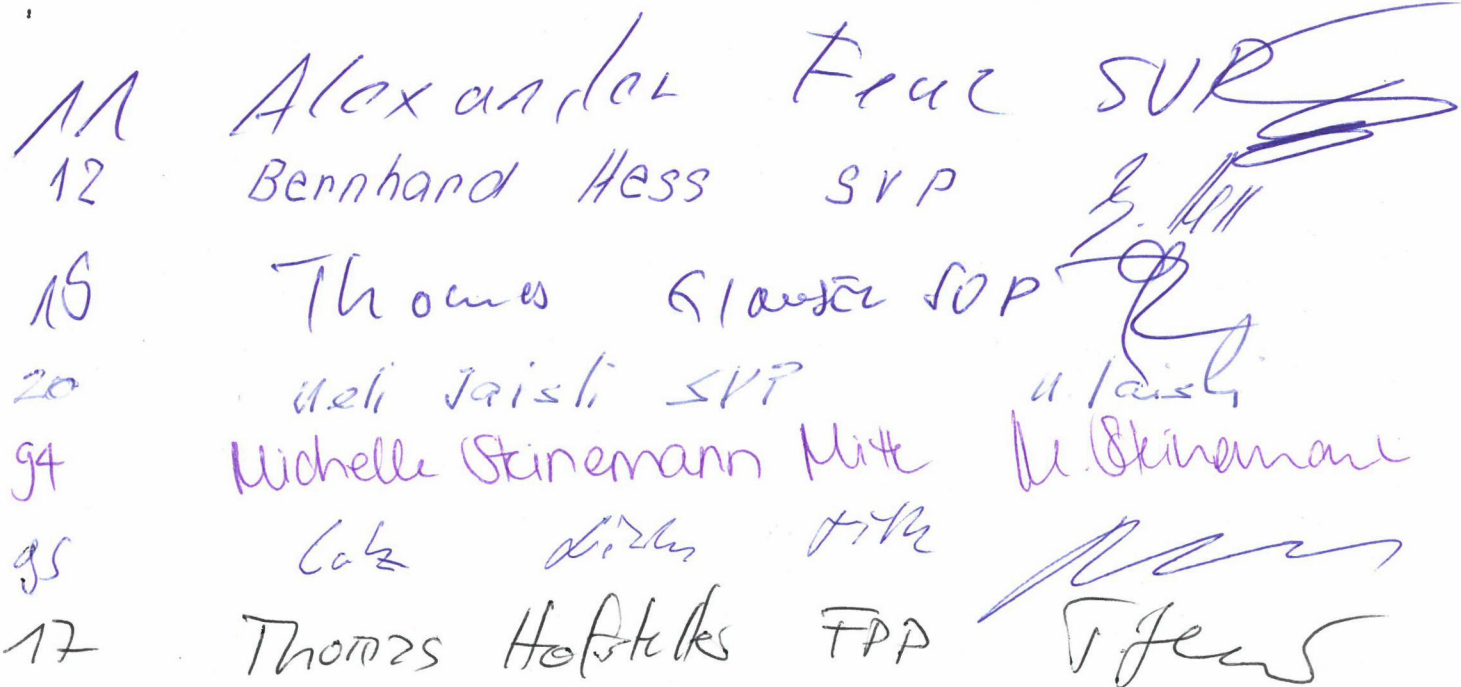 11 Alexander Feuz SVP
12 Bernhard Hess SVP B. Hess
15 Thomas Glauser SVP
20 Ueli Jaisli SVP U. Jaisli
94 Michelle Steinemann Mitte M. Steinemann
95 Mitte
17 Thomas Hofstetter FDP